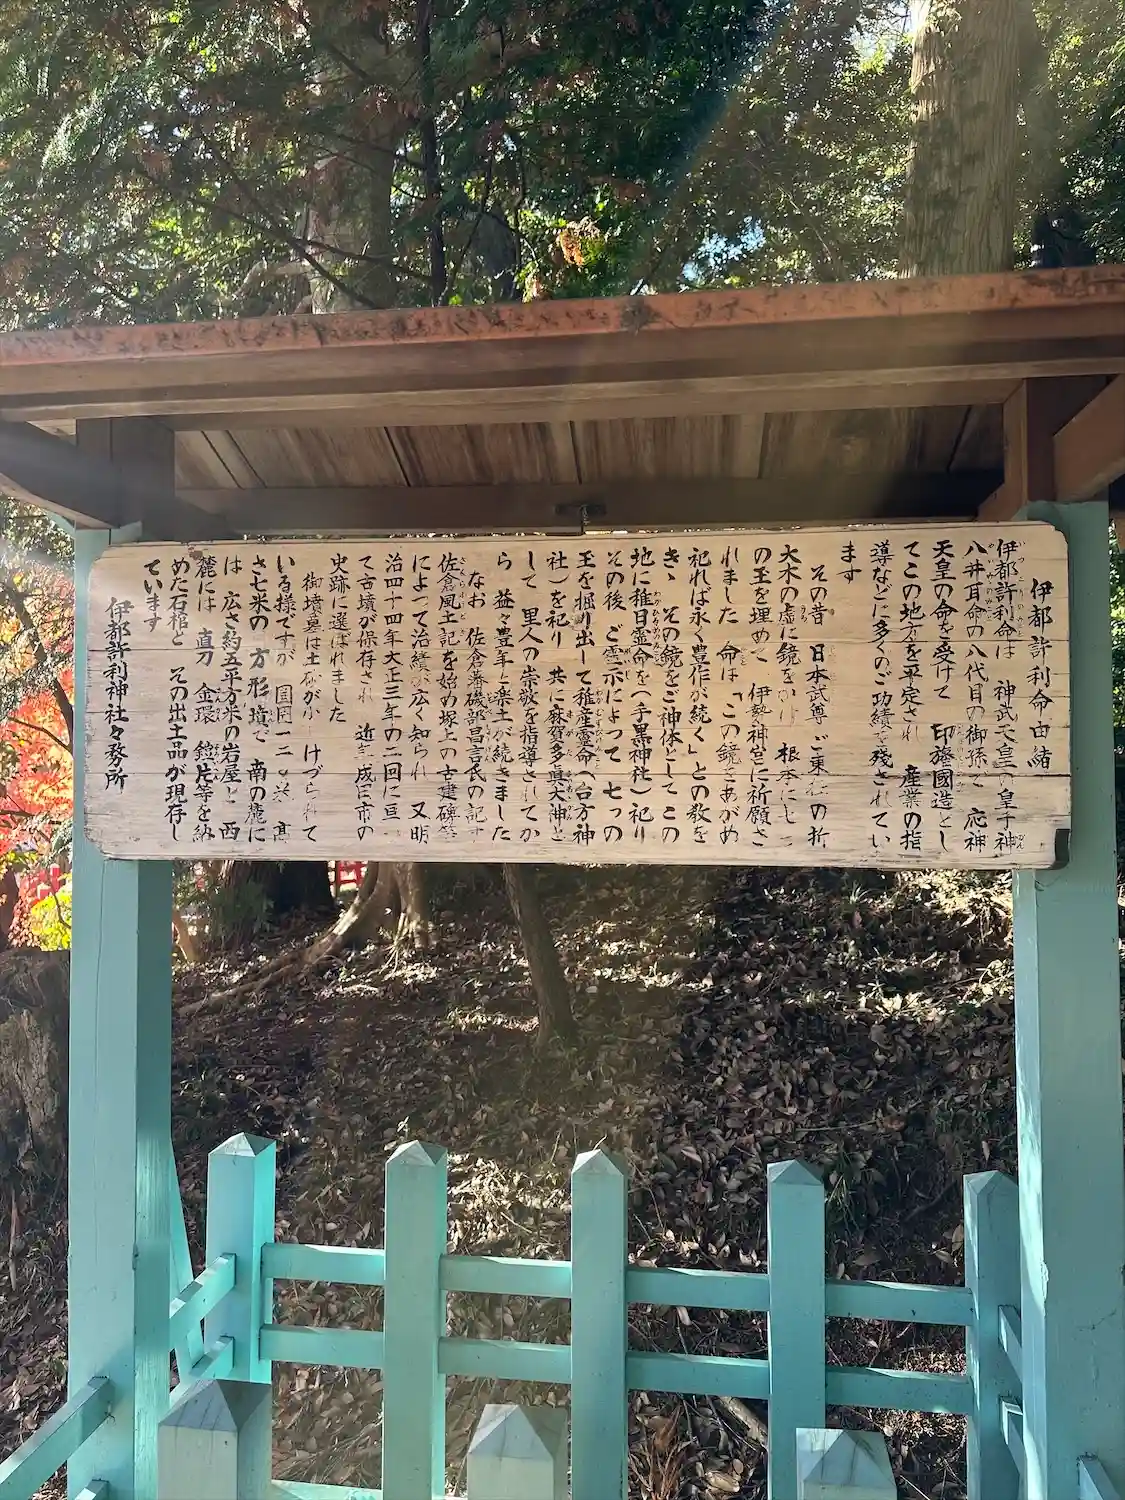 伊都許利命由緒
伊都許利命は 神武天皇の皇子神
八井耳命の八代目の御孫で 応神
天皇の命を受けて 印旛國造とし
てこの地方を平定され 産業の指
導などに多くのご功績を残されてい
ます
その昔 日本武尊がご東征の折
大木の虚に鏡をかけ 根本に七つ
の玉を埋めて 伊勢神宮に祈願さ
れました 命は「この鏡をあがめ
祀れば永く豊作が続く」との教を
きゝ その鏡をご神体としてこの
地に稚日霊命を(手黒神社)祀り
その後 ご霊示によって 七つの
玉を掘り出して稚産霊命(台方神
社)を祀り 共に麻賀多真大神と
して 里人の崇敬を指導されてか
ら 益々豊年と楽土が続きました
なお 佐倉藩磯部昌言氏の記す
佐倉風土記を始め塚上の古建碑等
によって治績が広く知られ 又明
治四十四年大正三年の二回に亘
て古墳が保存され 近 成田市の
史跡に選ばれました
御墳墓は土砂が けづられて
いる様ですが 周囲一二 米 高
さ七米の 方形墳で 南の麓に
は 広さ約五平方米の岩屋と 西
麓には 直刀 金環 鎧片等を納
めた石棺と その出土品が現存し
ています
伊都許利神社々務所